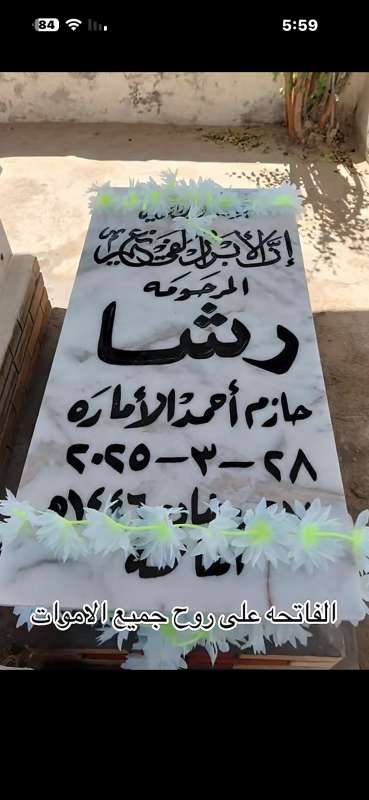 84
5:59
إن الأبرار لفي نعيم
المرحومه
رشا
حازم أحمد الأماره
٢٨-٣-٢٠٢٥
١٤٤٦ه
الفاتحه على روح جميع الاموات